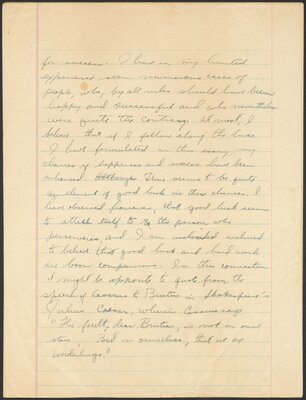 for success. I have in my limited
experience seen numerous cases of
people, who, by all rules should have been
happy and successful and who nevertheless
were quite the contrary. At most, I
believe, that if I follow along the lines
I have formulated in this essay, my
chances of happiness and success have been
enhanced. Although There seems to be quite
an element of good luck in these chances. I
have observed however, that good luck seems
to attach itself to the person who
perseveres, and I am inclined
to believe that good luck and hard work
are boon companions. In this connection
it might be apposite to quote from the
speech of Cassius to Brutus in Shakespeare's
Julius Caesar, wherein Cassius says
"The fault, dear Brutus, is not in our
stars, But in ourselves, that we are
underlings."